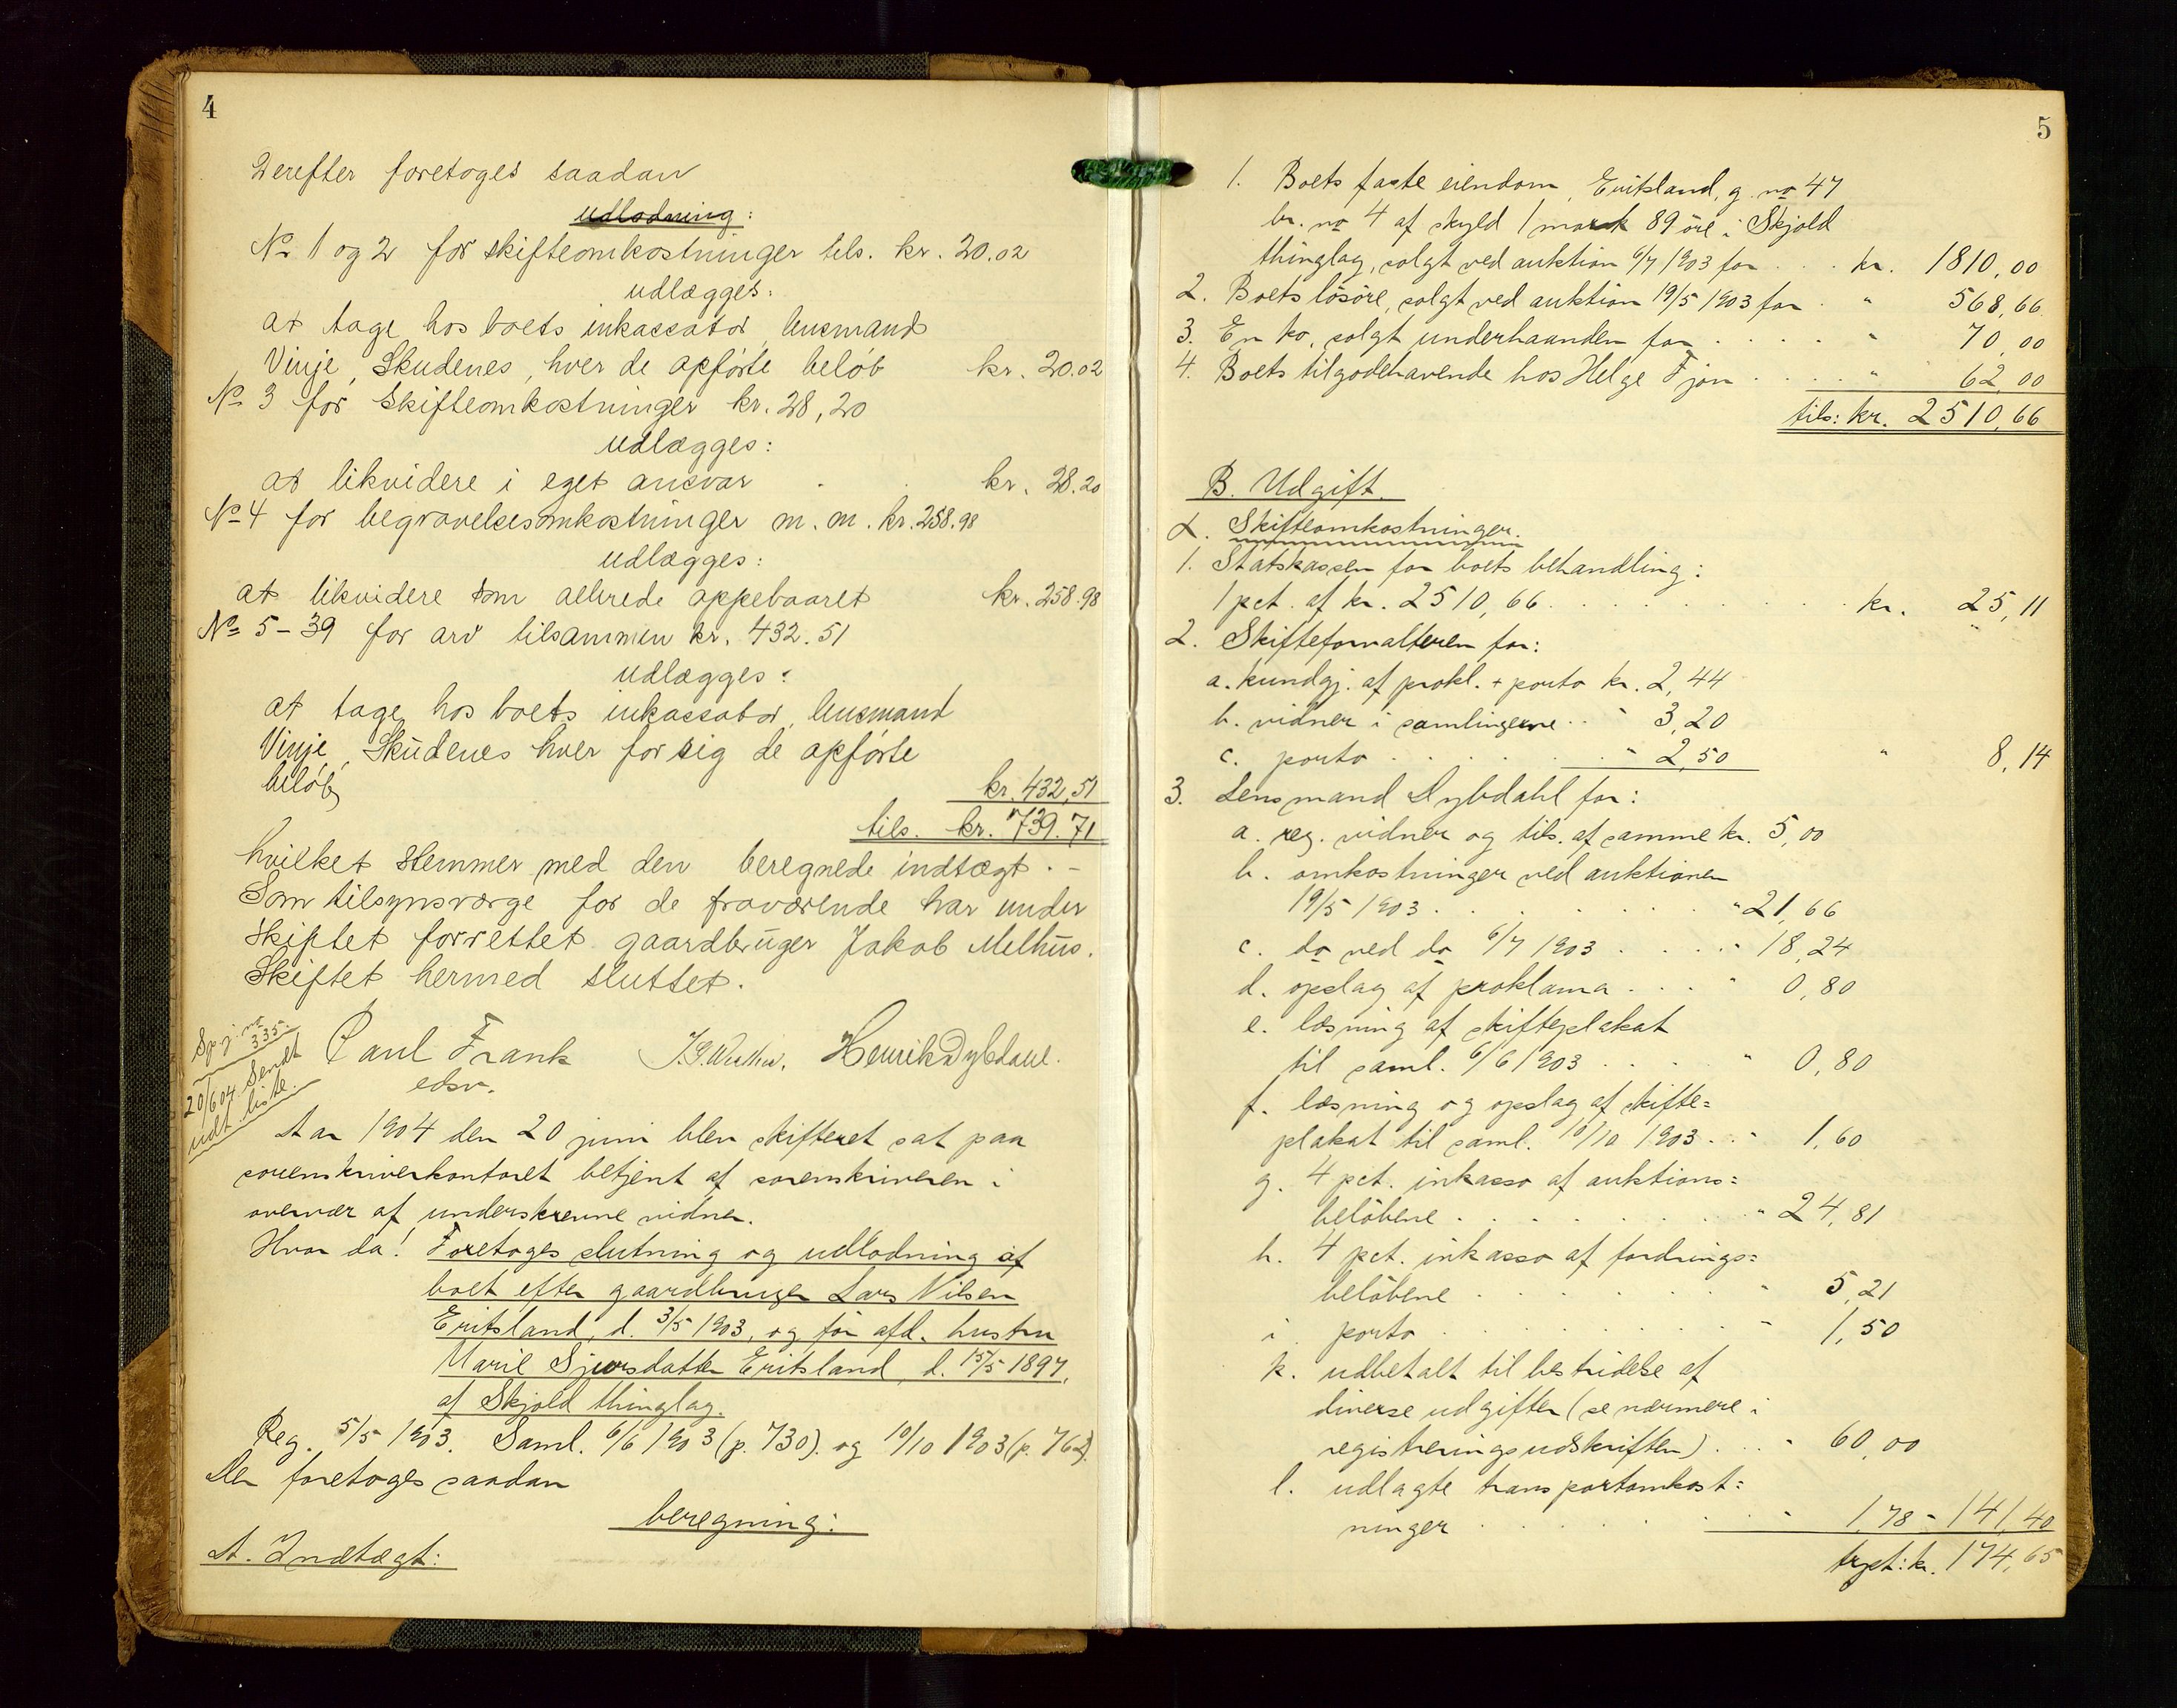 4
Derefter foretoges saadan
udlodning:
No 1 og 2 for skifteomkostninger tils. kr. 20.02
udlægges:
at tage hos boets inkassator, lensmand
Vinje, Skudenes, hver de opførte beløb kr. 20.02
No 3 for skifteomkostninger kr. 28,20
udlægges:
at likvidere i eget ansvar . . kr. 28.20
No 4 for begravelsesomkostninger m. m. kr. 258.98
udlægges:
at likvidere som allerede oppebaaret kr. 258.98
No 5-39 for arv tilsammen kr. 432.51
udlægges:
at tage hos boets inkassator, lensmand
Vinje, Skudenes hver for sig de opførte
beløb kr. 432,51
tils. kr. 739.71
hvilket stemmer med den beregnede indtægt. -
Som tilsynsværge for de fraværende har under
skiftet forrettet gaardbruger Jakob Melhus.
Skiftet hermed sluttet.
Sp.j. no 335.
20/6 04 Sendt
udt. liste.
Paul Frank
edsv.
Henrik Dybdahl.
Aar 1904 den 20 juni blev skifteret sat paa
sorenskriverkontoret betjent af sorenskriveren i
overvær af underskrevne vidner.
Hvor da! Foretoges slutning og udlodning af
boet efter gaardbruger Lars Nilsen
Eritsland, d. 3/5 1903, og før afd. hustru
Maril Sjursdatter Eritsland, d. 15/5 1897,
af Skjold thinglag.
Reg. 5/5 1903. Saml. 6/6 1903 (p. 730). og 10/10 1903 (p. 762).
Der foretoges saadan
beregning:
A. Indtægt:
5
1. Boets faste eiendom, Eritsland, g. no 47
br. no 4 af skyld 1 mark 89 øre i Skjold
thinglag, solgt ved auktion 6/7 1903 for . . . kr. 1810,00
2. Boets løsøre, solgt ved auktion 19/5 1903 for . " 568,66
3. En ko, solgt underhaanden for . . . . . " 70,00
4. Boets tilgodehavende hos Helge Fjon . . . . " 62,00
tils: kr. 2510,66
B. Udgift.
α. Skifteomkostninger.
1. Statskassen for boets behandling:
1 pct. af kr. 2510,66 . . . . . . . . kr. 25,11
2. Skifteforvalteren for:
a. kundgj. af prokl. + porto kr. 2,44
b. vidner i samlingerne . . " 3,20
c. porto . . . . . . " 2,50 " 8,14
3. Lensmand Dybdahl for:
a. reg. vidner og tils. af samme kr. 5,00
b. omkostninger ved auktionen
19/5 1903 . . . . . . . " 21,66
c. do ved do 6/7 1903 . . . . " 18,24
d. opslag af proklama . . . " 0,80
e. læsning af skifteplakat
til saml. 6/6 1903 . . . . " 0,80
f. læsning og opslag af skifte=
plakat til saml. 10/10 1903 . . " 1,60
g. 4 pct. inkasso af auktions=
beløbene . . . . . . . " 24,81
h. 4 pct. inkasso af fordrings=
beløbene . . . . . . . " 5,21
i. porto . . . . . . . . " 1,50
k. udbetalt til bestridelse af
diverse udgifter (se nærmere i
registreringsudskriften) . . . " 60,00
l. udlagte transportomkost=
ninger . . . . . . . " 1,78 " 141,40
trpt: kr. 174,65